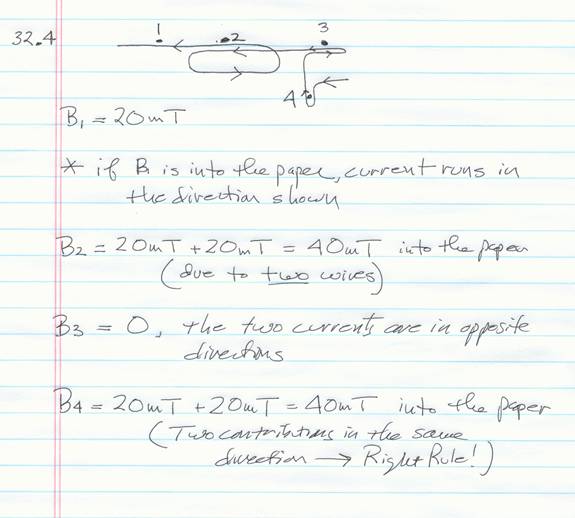 32.4
1 2 3
4
B1 = 20mT
* if B is into the paper, current runs in
the direction shown
B2 = 20mT + 20mT = 40mT into the paper
(due to two wires)
B3 = 0, the two currents are in opposite
directions
B4 = 20mT + 20mT = 40mT into the paper
(Two contributions in the same
direction → Right Rule!)